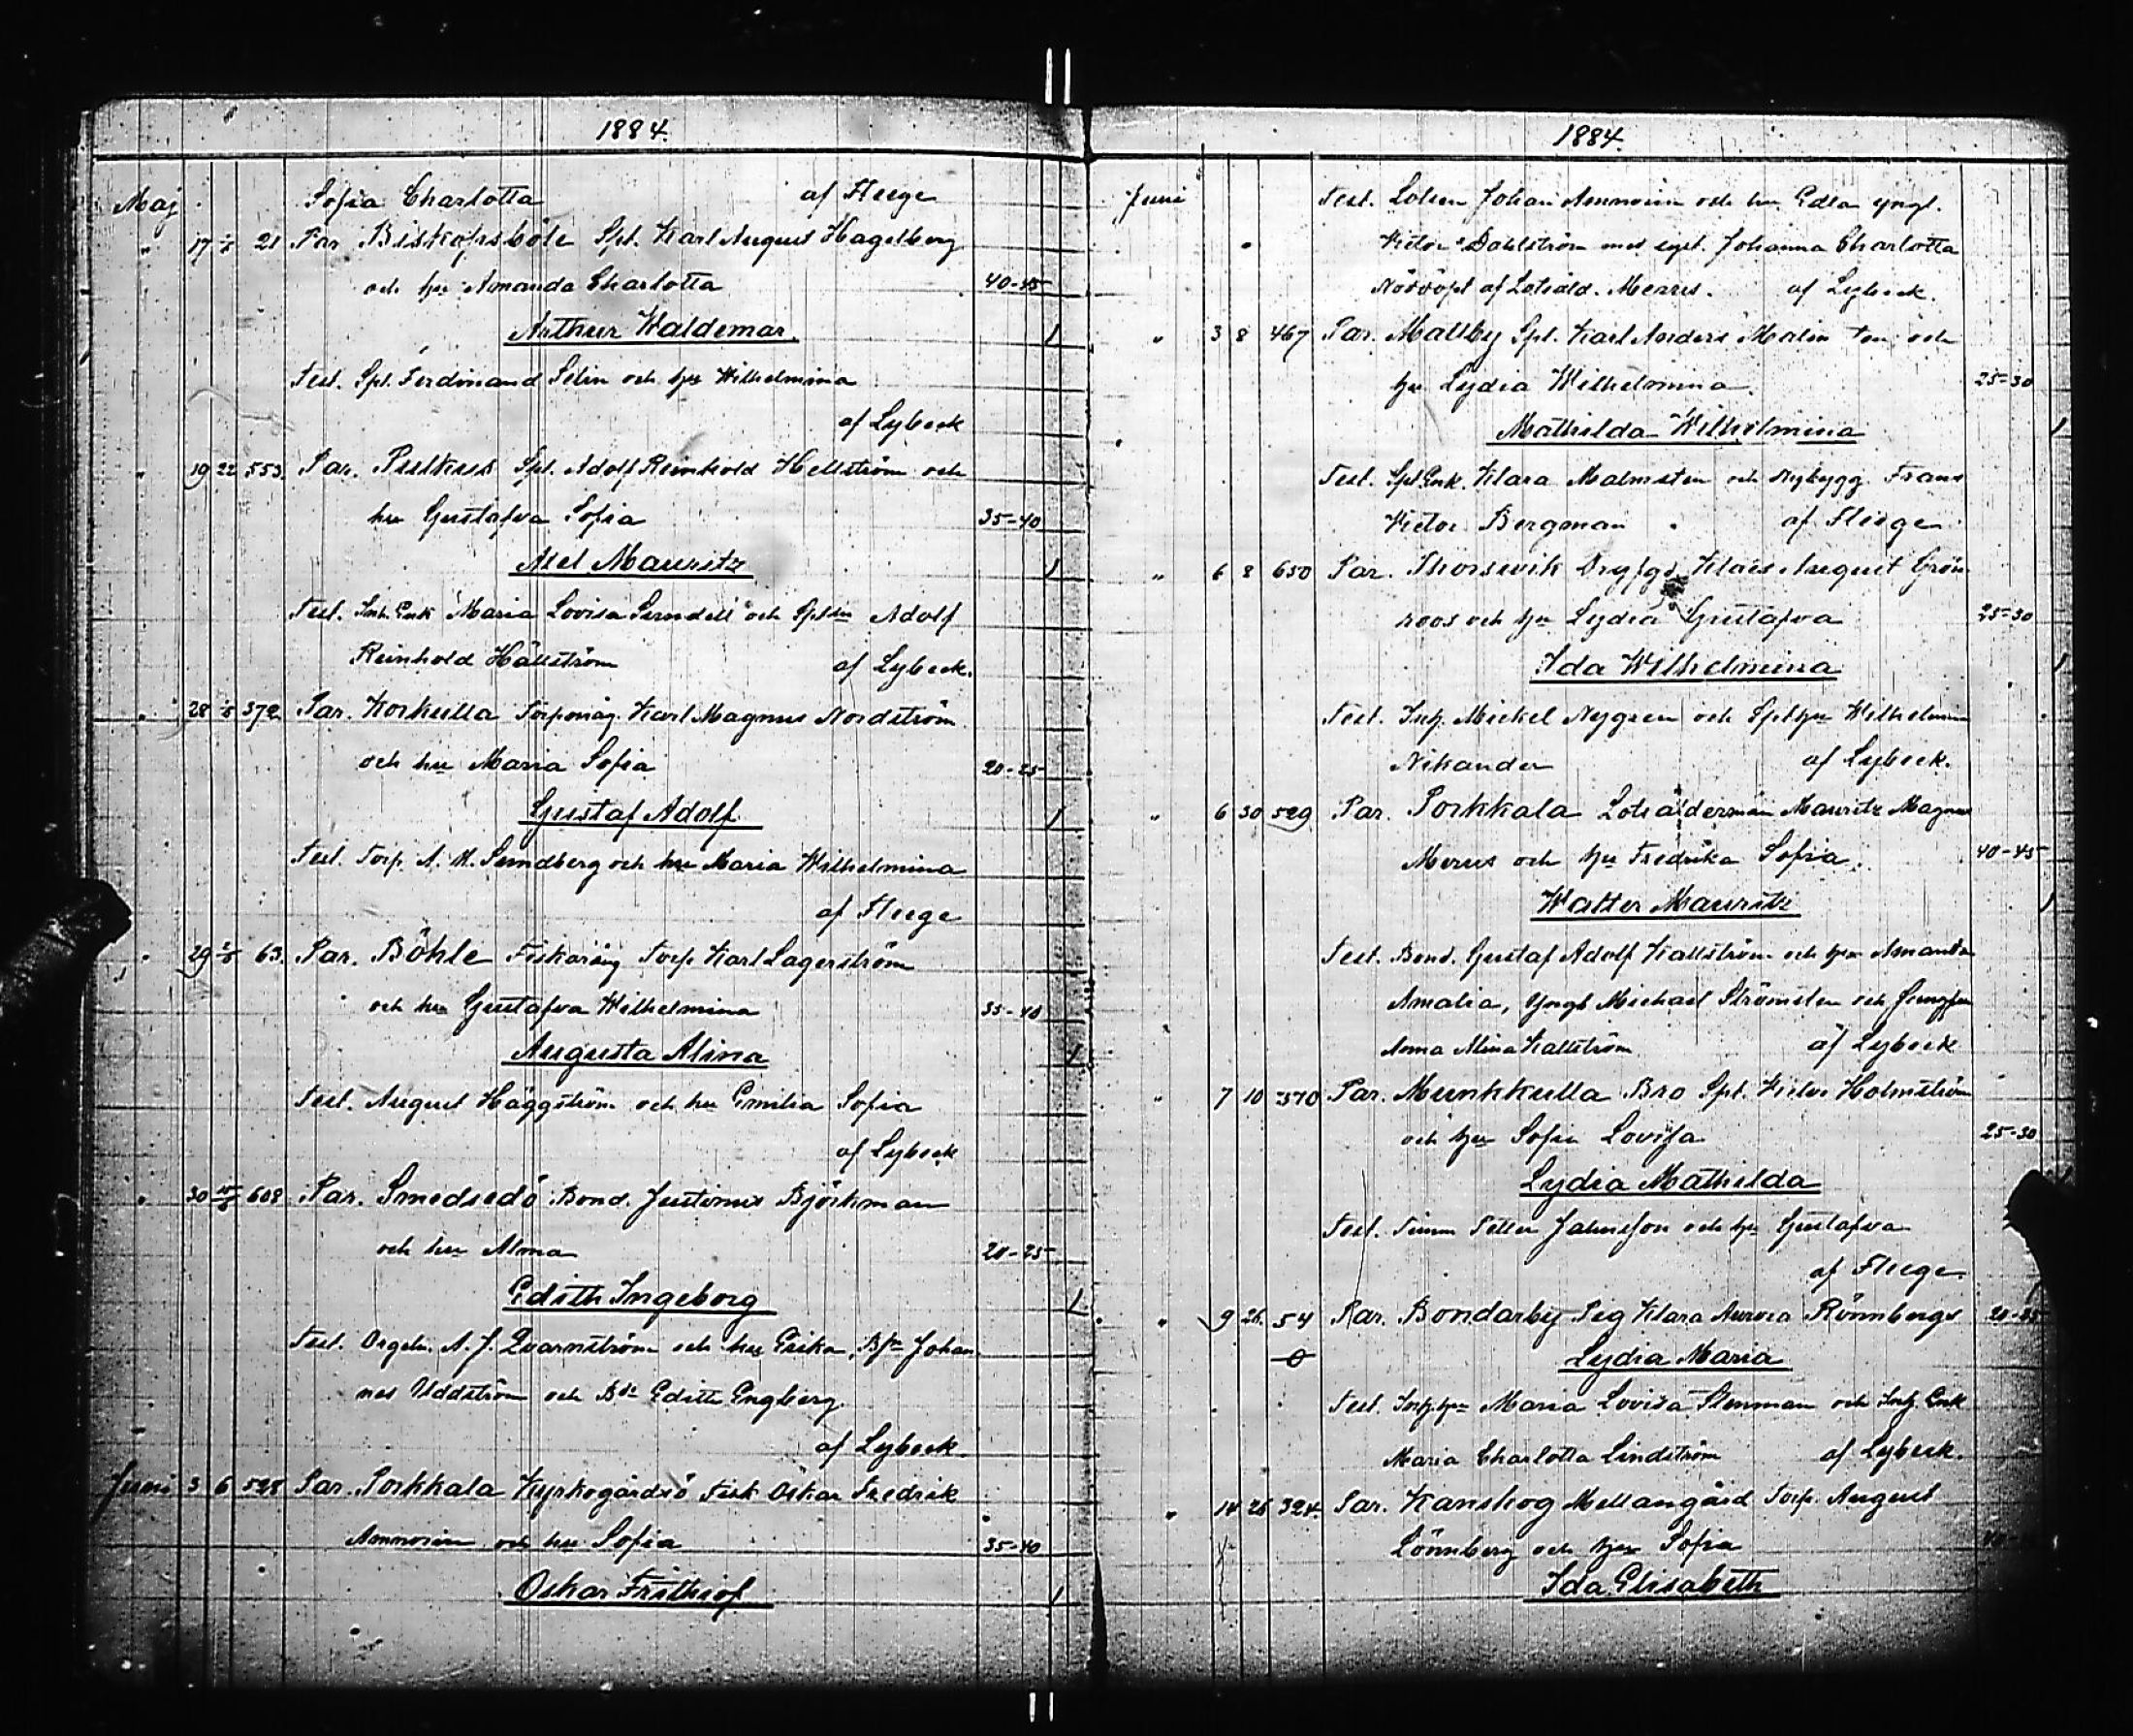 1884.
Maj Sofia Charlotta af Fleege
" 17 1/6 21 Par. Biskopsböle Spl. Karl August Hagelberg
och hu Amanda Charlotta 40-45
Arthur Waldemar. 1
Test. Spl. Ferdinand Selin och hu Wilhelmina
af Lybeck
" 19 22 553. Par. Spl. Adolf Reinhold Hellström och
hu Gustafva Sofia 35-40
Axel Mauritz 1
Test. Inh. Enk Maria Lovisa och Adolf
Reinhold Hällström af Lybeck.
" 28 372 Par. Korkulla Torpmåg. Karl Magnus Nordström
och hu Maria Sofia 20-25
Gustaf Adolf 1
Test. Torp. A. K. Sundberg och hu Maria Wilhelmina
af Fleege
" 29 63. Par. Böhle Torp Karl Lagerström
och hu Gustafva Wilhelmina 35-40
Augusta Alina 1
Test. August Häggström och hu Emilia Sofia
af Lybeck
" 30 608 Par. Smedsedö Bond. Justinus Björkman
och hu Alma 20-25
Edith Ingeborg 1
Test. Orgeln. A. J. Qvarnström och hu Erika, Johan
nes Uddström och Edith Engberg.
af Lybeck.
Juni 3 6 528 Par. Porkkala Kyrkogårdsö Fisk Oskar Fredrik
och hu Sofia 35-40
Oskar Frithiof 1
1884.
Juni Test. Lotsen Johan och hu Edla yngl.
Victor Dahlström med Johanna Charlotta
af Lotsåld. af Lybeck.
" 3 8 467 Par. Mallby Spl. Karl Anders Malm och
hu Lydia Wilhelmina 25-30
Mathilda Wilhelmina 1
Test. Spl. Enk. Klara Malmsten och Nybygg. Frans
Victor Bergman af Fleege
" 6 8 650 Par. Thorsvik Klaes August Grön
roos och hu Lydia Gustafva 25-30
Ida Wilhelmina 1
Test. Inh. Mickel Nygren och Wilhelmina
Nikander af Lybeck.
" 6 30 529 Par. Porkkala Lotsålderman Mauritz Magnus
och hu Fredrika Sofia. 40-45
Walter Mauritz 1
Test. Bond. Gustaf Adolf Kallström och hu Amanda
Amalia, Yngl Michael Strömsten och Jungfru
Anna Alina Kallström af Lybeck
" 7 10 370 Par. Munkkulla Bro Spl. Victor Holmström
och hu Sofia Lovisa 25-30
Lydia Mathilda
Test. Timm Petter och hu Gustafva
af Fleege.
" 9 26. 54 Par. Bondarby Pig Klara Aurora Rönnbergs 20-25
Lydia Maria
Test. Inh. hu Maria Lovisa Stenman och Inh. Enk
Maria Charlotta Lindström af Lybeck.
" 14 26 324. Par. Kanskog Mellangård Torp. August
Lönnberg och hu Sofia
Ida Elisabeth